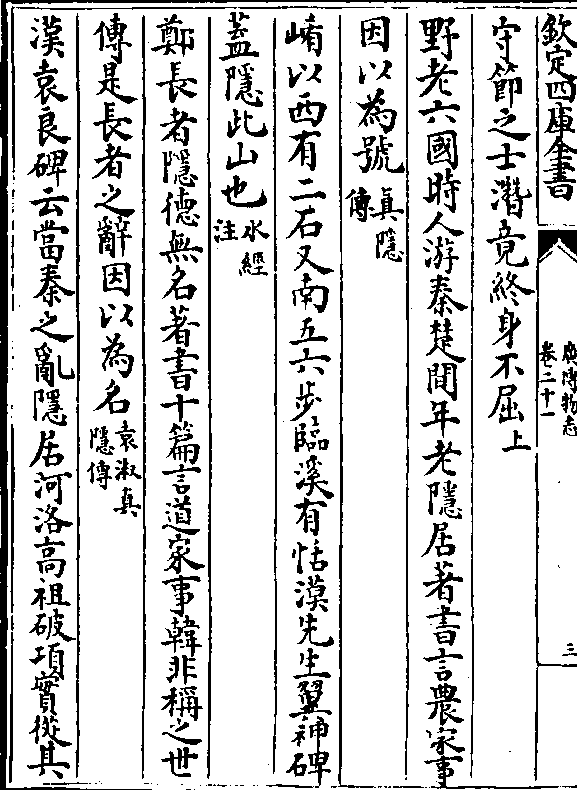 欽定四庫全書
廣博物志
卷二十一
三
守節之士潛竟終身不屈上
野老六國時人游秦楚間年老隱居著書言農家事
因以為號真隱
傳
崤以西有二石又南五六步臨溪有恬漠先生翼神碑
蓋隱此山也水經
注
鄭長者隱德無名著書十篇言道家事韓非稱之世
傳是長者之辭因以為名袁淑真
隱傳
漢袁良碑云當秦之亂隱居河洛高祖破項實從其